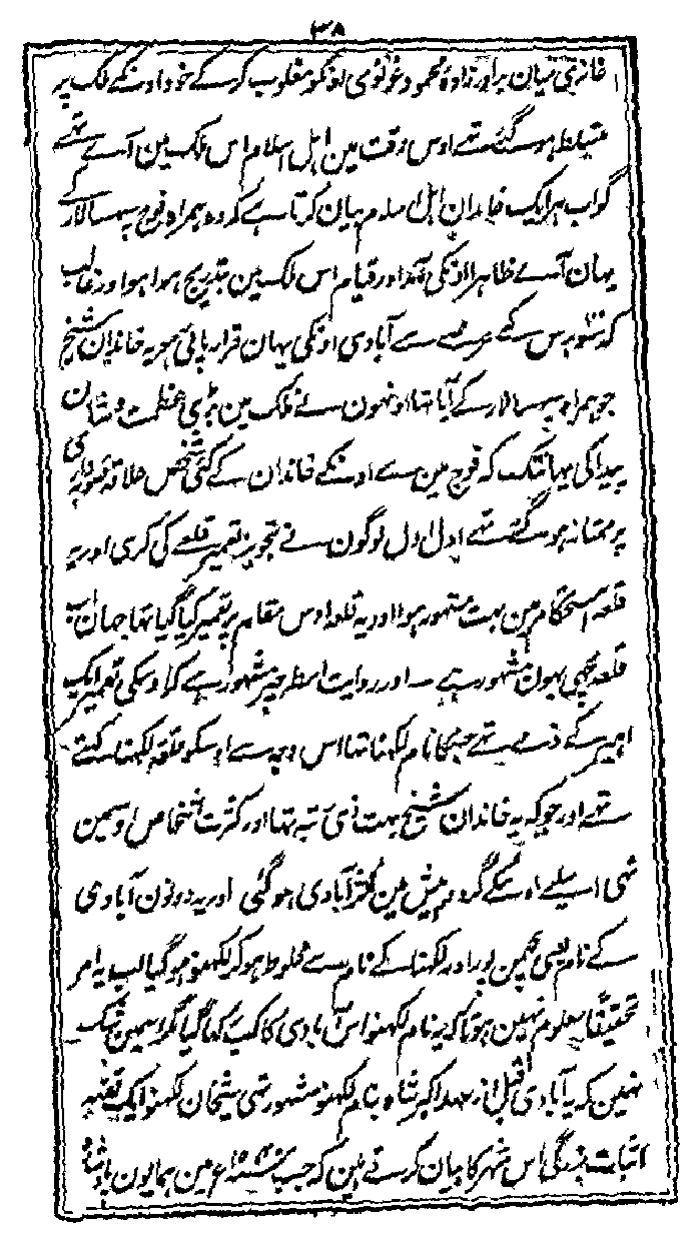 ۳۸
غازی میان برادرزادہ محمود غزنوی اونکو مغلوب کرکے خود اونکے ملک پر
متسلط ہوگئے تھے اوس وقت مین اہل اسلام اس ملک مین آئے تھے
گو اب ہر ایک خاندان اہل اسلام بیان کرتا ہے کہ وہ ہمراہ فوج سپہ سالار کے
یہان آئے ظاہرا اونکی آمد اور قیام اس ملک مین بتدریج ہوا ہو اور غالب
کہ سو برس کے عرصے سے آبادی اونکی یہان قرار پائی ہو یہ خاندان شیخ
جو ہمراہ سپہ سالار کے آیا تھا اونہون نے ملک مین بڑی عظمت و شان
پیدا کی یہانتک کہ فوج مین سے اونکے خاندان کے کئی شخص علاقہ صوبہ داری
پر ممتاز ہوگئے تھے اول اول لوگون نے تجویز تعمیر قلعے کی کری اور یہ
قلعہ استحکام مین بہت مشہور ہوا اور یہ قلعہ اوس مقام پر تعمیر کیا گیا تھا جہان اب
قلعہ مچھی بہون مشہور ہے ۔ اور روایت اسطرحپر مشہور ہے کہ اوسکی تعمیر ایک
اہیر کے ذمے تھے جسکا نام لکھنا تھا اس وجہ سے اوسکو قلعہ لکھنا کہتے
تھے اور جوکہ یہ خاندان شیخ بہت ذی رتبہ تھا اور کثرت اشخاص اوسمین
تھی اسیلیے اوسکے گرد و پیش مین کثرآبادی ہوگئی اور یہ دونون آبادی
کے نام یعنی لچھمن پور اور لکھنا کے نام سے مخلوط ہوکر لکھنؤ ہوگیا اب یہ امر
تحقیقاً معلوم نہین ہوتا کہ یہ نام لکھنؤ اس آبادی کا کب رکھا گیا مگر اسمین شک
نہین کہ یہ آبادی قبل از عہد اکبر شاہ بنام لکھنؤ مشہور تھی شیخان لکھنؤ ایک قصہ
اثبات بزرگی اس شہر کا بیان کرتے ہین کہ جب سنہ ۱۵۴۰ع مین ہمایون بادشاہ